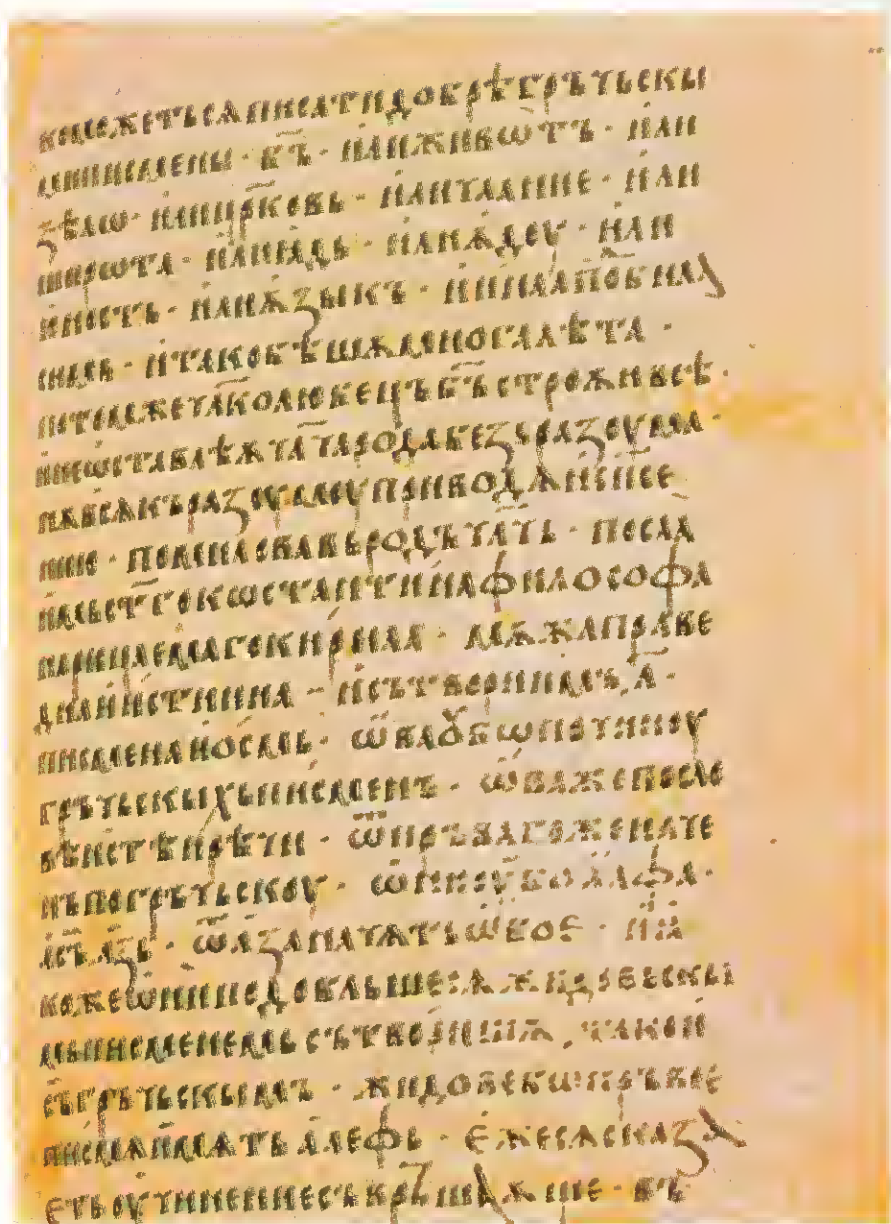 кможетьсѧписатидобрѣгръчьскы
миписмены · б҃ъ · илиживѡтъ · или
ѕѣлѡ · илицр҃ковь · иличаание · или
ширѡта · илиꙗдь · илиѫдоу · или
юность · илиѫзыкъ · иинаапо҃бнаа
симь · итакобѣшѫмногалѣта ·
потомжечл҃колюбецъб҃ъстроѫивсѣ ·
инеѡставлѣѫчл҃чародабезразоума ·
нѫвсѧкъразоумоуприводѧисп҃се
ние · помиловавьродъчл҃чь · посла
имьст҃гокѡстантинафилософа
нарицаемагокирила · мѫжаправе
днаиистинна · исътворииимъ л҃ ·
писменаиосмь · ѡ҆ваоу҆бѡпочиноу
гръчьскыхьписменъ · ѡ҆важепосло
вѣнстѣирѣчи · ѿпръвагоженаче
нъпогръчьскоу · ѡ҆ниоу҆боа҆лфа ·
асъазъ · ѿазаначѧтъѡ҆бое · иꙗ
кожеѡ҆ниподоблъшесѧжидовьскы
мьписменемьсътворишѧ, такои
съгръчьскымъ · жидовебѡпръвое
писмѧимѫтьа҆лефь · е҆жесѧсказа
етьоучениесъвръшаѫще · въ